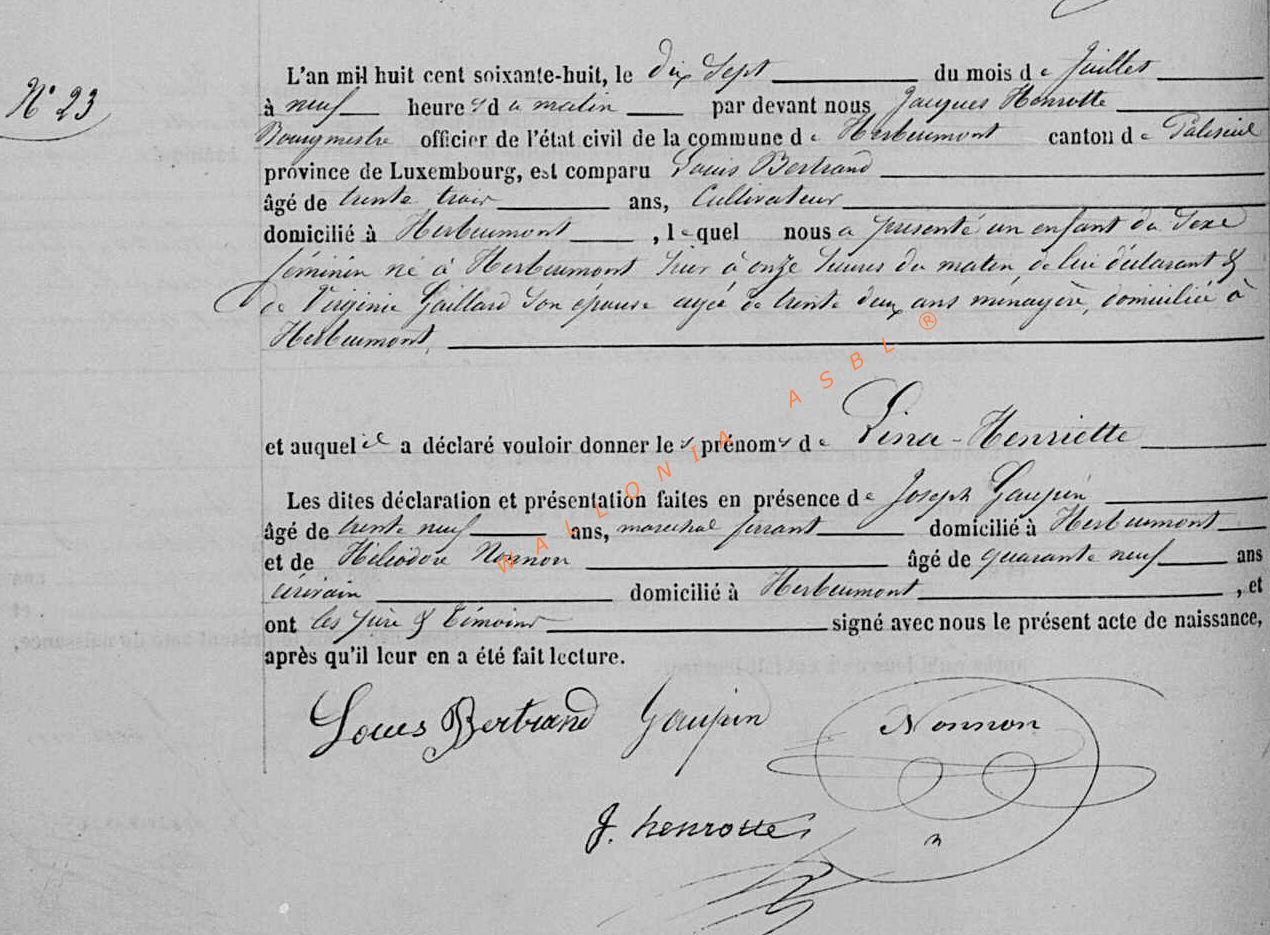 N° 23
L'an mil huit cent soixante-huit, le dix Sept du mois de Juillet
à neuf heures du matin par devant nous Jacques Henrotte
Bourgmestre officier de l'état civil de la commune de Herbeumont canton de Paliseul
province de Luxembourg, est comparu Louis Bertrand
âgé de trente trois ans, Cultivateur
domicilié à Herbeumont, lequel nous a présenté un enfant du Sexe
féminin né à Herbeumont hier à onze heures du matin, de lui déclarant &
de Virginie Gaillard Son épouse agée de trente deux ans ménagère, domiciliée à
Herbeumont,
et auquel il a déclaré vouloir donner les prénoms de Lina-Henriette
Les dites déclaration et présentation faites en présence de Joseph Gaupin
âgé de trente neuf ans, maréchal ferrant domicilié à Herbeumont
et de Héliodore Nonnon âgé de quarante neuf ans
écrivain domicilié à Herbeumont, et
ont les père & témoins signé avec nous le présent acte de naissance,
après qu'il leur en a été fait lecture.
Louis Bertrand Gaupin Nonnon
J. henrotte
WALLONIA ASBL ®